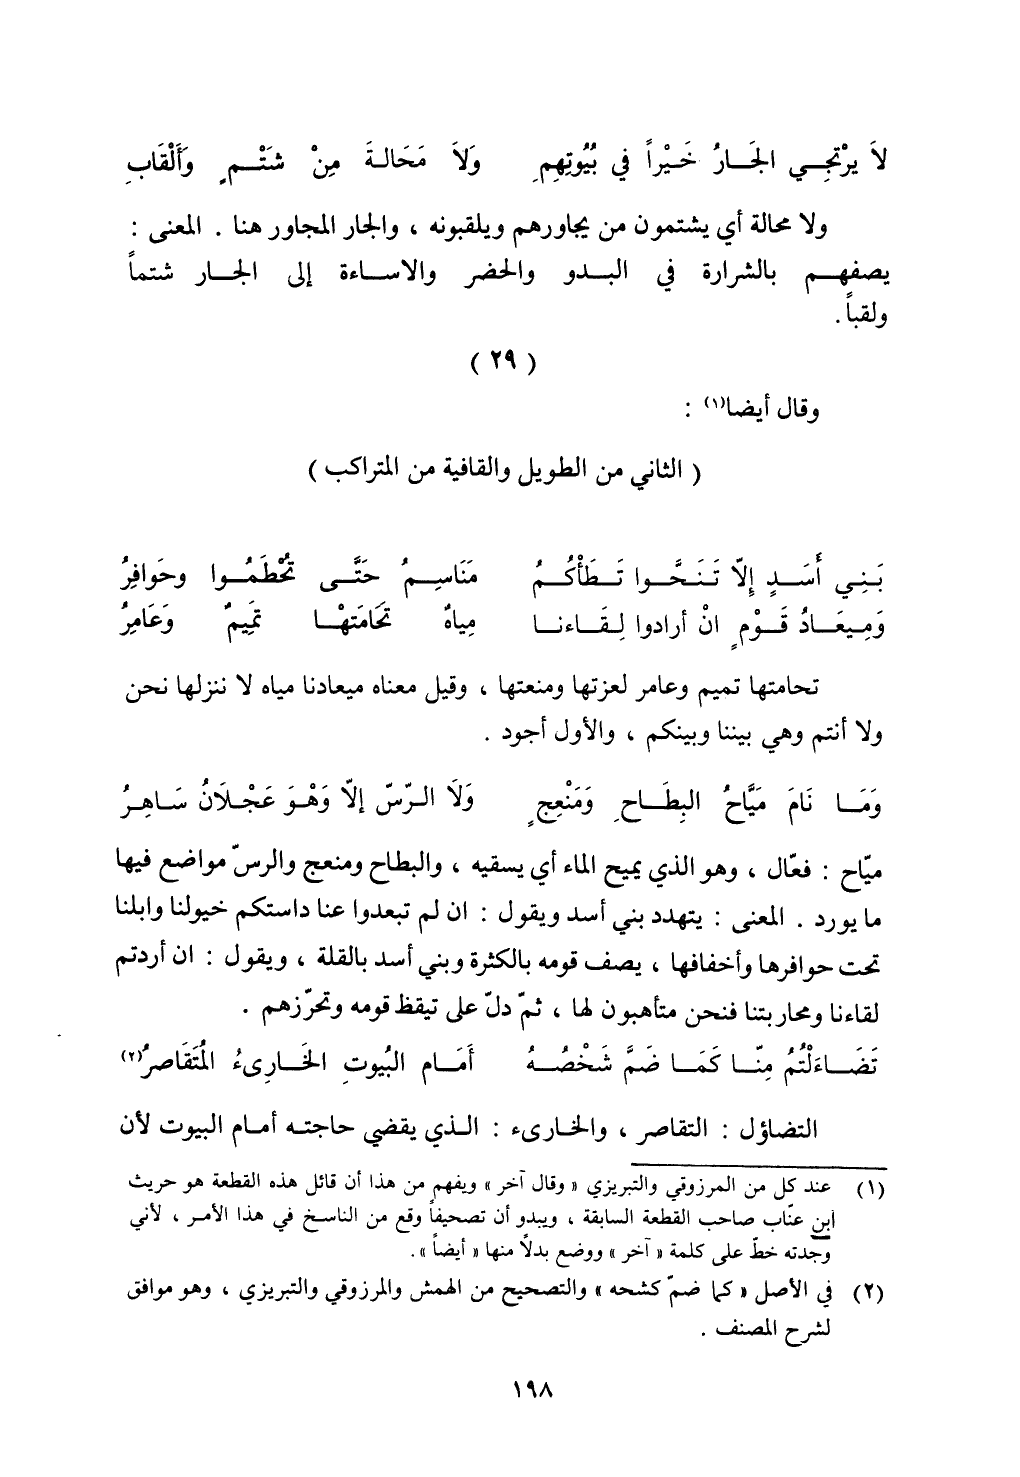 لاَ يرْتجِي الجَارُ خَيْراً في بُيُوتِهِمِ وَلاَ مَحَالةَ مِنْ شَتْمٍ وَأَلْقَابِ
ولا محالة أي يشتمون من يجاورهم ويلقبونه ، والجار المجاور هنا . المعنى :
يصفهم بالشرارة في البدو والحضر والاساءة إلى الجار شتماً
ولقباً .
( ٢٩ )
وقال أيضا(١) :
( الثاني من الطويل والقافية من المتراكب )
بَنِي أَسَدٍ إِلاّ تَنَحَّوا تَطَأْكُمُ مَنَاسِمُ حَتَّى تُحْطَمُوا وحَوافِرُ
وَمِيعَادُ قَوْمٍ انْ أرادوا لِقَاءنا مِياهٌ تَحَامَتْهَا تمَِيمٌ وَعَامِرُ
تحامتها تميم وعامر لعزتها ومنعتها ، وقيل معناه ميعادنا مياه لا ننزلها نحن
ولا أنتم وهي بيننا وبينكم ، والأول أجود .
وَمَا نَامَ مَيَّاحُ البِطَاحِ وَمَنْعِجٍ وَلَا الرّسّ إلّا وَهْوَ عَجْلَانُ سَاهِرُ
ميّاح : فعّال ، وهو الذي يميح الماء أي يسقيه ، والبطاح ومنعج والرسّ مواضع فيها
ما يورد . المعنى : يتهدد بني أسد ويقول : ان لم تبعدوا عنا داستكم خيولنا وابلنا
تحت حوافرها وأخفافها ، يصف قومه بالكثرة وبني أسد بالقلة ، ويقول : ان أردتم
لقاءنا ومحاربتنا فنحن متأهبون لها ، ثمّ دلّ على تيقظ قومه وتحرّزهم .
تَضَاءَلْتُمُ مِنّا كَمَا ضَمَّ شَخْصُهُ أَمَام البُيوتِ الخَارِىءُ المُتَقَاصرُ(٢)
التضاؤل : التقاصر ، والخارىء : الذي يقضي حاجته أمام البيوت لأن
(١) عند كل من المرزوقي والتبريزي « وقال آخر » ويفهم من هذا أن قائل هذه القطعة هو حريث
ابن عنّاب صاحب القطعة السابقة ، ويبدو أن تصحيفاً وقع من الناسخ في هذا الأمر ، لأني
وجدته خطّ على كلمة « آخر » ووضع بدلاً منها « أيضاً ».
(٢) في الأصل « كما ضمّ كشحه » والتصحيح من الهمش والمرزوقي والتبريزي ، وهو موافق
لشرح المصنف .
١٩٨